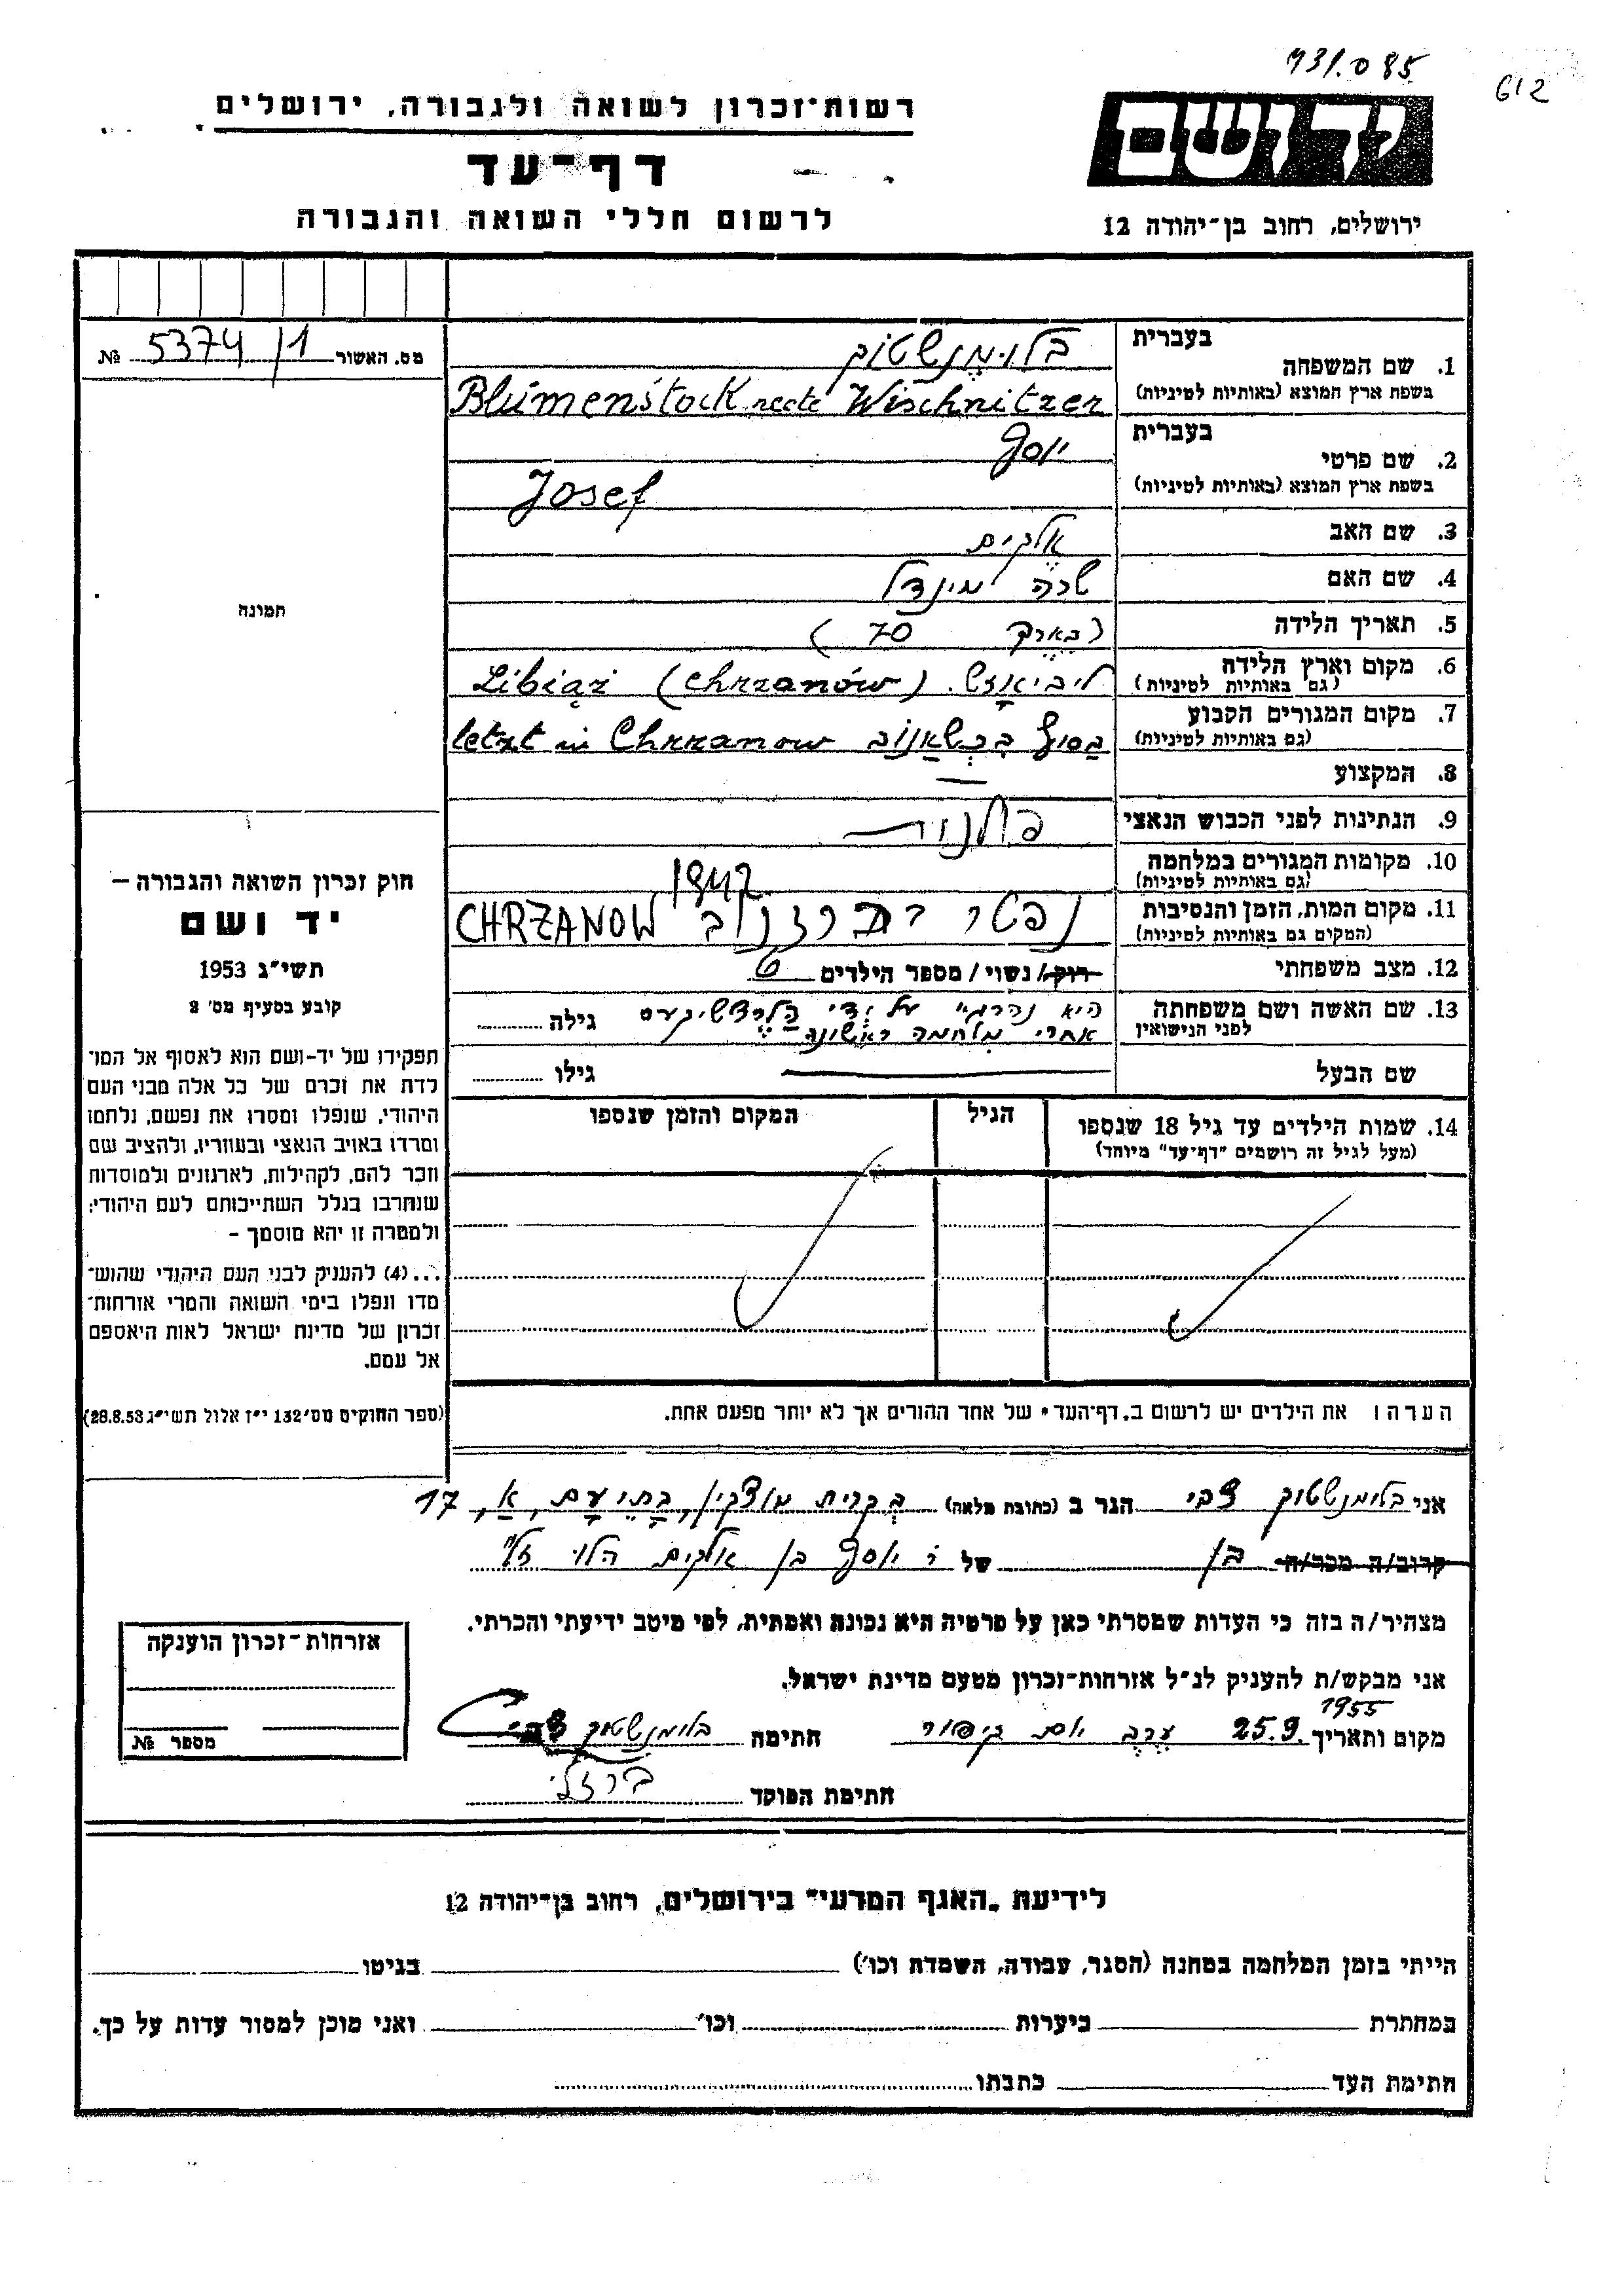 931.085
612
רשות־זכרון לשואה ולגבורה, ירושלים
דף־עד
לרשום חללי השואה והגבורה
יד ושם
ירושלים, רחוב בן־יהודה 12
מס. האשור 5374/1 №
1. שם המשפחה
בעברית
בלוימנשטוק
בשפת ארץ המוצא (באותיות לטיניות)
Blumenstock recte Wischnitzer
2. שם פרטי
בעברית
יוסף
בשפת ארץ המוצא (באותיות לטיניות)
Josef
3. שם האב אלקים
4. שם האם שרה מינדל
5. תאריך הלידה (בערך 70)
6. מקום וארץ הלידה
(גם באותיות לטיניות)
ליביאנזש. (Chrzanów) Libiąż
7. מקום המגורים הקבוע
(גם באותיות לטיניות)
בסוף בכשאנוב letzt in Chrzanow
8. המקצוע —
9. הנתינות לפני הכבוש הנאצי פולנית
10. מקומות המגורים במלחמה
(גם באותיות לטיניות)
1942
11. מקום המות, הזמן והנסיבות
(המקום גם באותיות לטיניות)
נפטר בחרזנוב CHRZANOW
12. מצב משפחתי רווק/ נשוי/ מספר הילדים 6
13. שם האשה ושם משפחתה
לפני הנישואין
היא נהרגה על ידי
אחרי מלחמה ראשונה
גילה
שם הבעל גילו
14. שמות הילדים עד גיל 18 שנספו
(מעל לגיל זה רושמים "דף־עד" מיוחד)
הגיל
המקום והזמן שנספו
הערה: את הילדים יש לרשום ב„דף־העד" של אחד ההורים אך לא יותר מפעם אחת.
תמונה
חוק זכרון השואה והגבורה –
יד ושם
תשי״ג 1953
קובע בסעיף מס' 2
תפקידו של יד-ושם הוא לאסוף אל המו־
לדת את זכרם של כל אלה מבני העם
היהודי, שנפלו ומסרו את נפשם, נלחמו
ומרדו באויב הנאצי ובעוזריו, ולהציב שם
וזכר להם, לקהילות, לארגונים ולמוסדות
שנחרבו בגלל השתייכותם לעם היהודי;
ולמטרה זו יהא מוסמך –
...(4) להעניק לבני העם היהודי שהוש־
מדו ונפלו בימי השואה והמרי אזרחות־
זכרון של מדינת ישראל לאות היאספם
אל עמם.
(ספר החוקים מס׳ 132 י״ז אלול תשי״ג 28.8.53)
אני בלומנשטוק צבי הגר ב (כתובת מלאה) בקרית מוצקין, בתי עם, א, 17
קרוב/ה מכר/ה בן של ר יוסף בן אלקים הלוי ז"ל
מצהיר/ה בזה כי העדות שמסרתי כאן על פרטיה היא נכונה ואמתית, לפי מיטב ידיעתי והכרתי.
אני מבקש/ת להעניק לנ״ל אזרחות-זכרון מטעם מדינת ישראל.
1955
מקום ותאריך 25.9. ערב יום כיפור חתימה בלומנשטוק צבי
חתימת הפוקד ברזלי
אזרחות־זכרון הוענקה
מספר №
לידיעת „האגף המדעי" בירושלים, רחוב בן־יהודה 12
הייתי בזמן המלחמה במחנה (הסגר, עבודה, השמדת וכו׳) בגיטו
במחתרת ביערות וכו׳ ואני מוכן למסור עדות על כך.
חתימת העד כתבתו